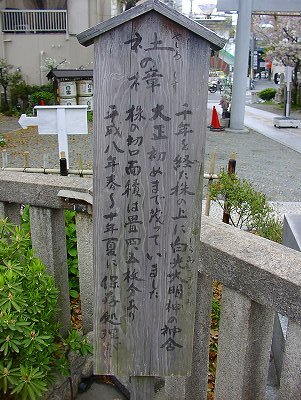 社の樟
千年を経た株の上に白光大明神の神舎
大正初めまで茂っていました
株の切口面積は畳四五枚分あり
平成八年春～十年夏に保存処理